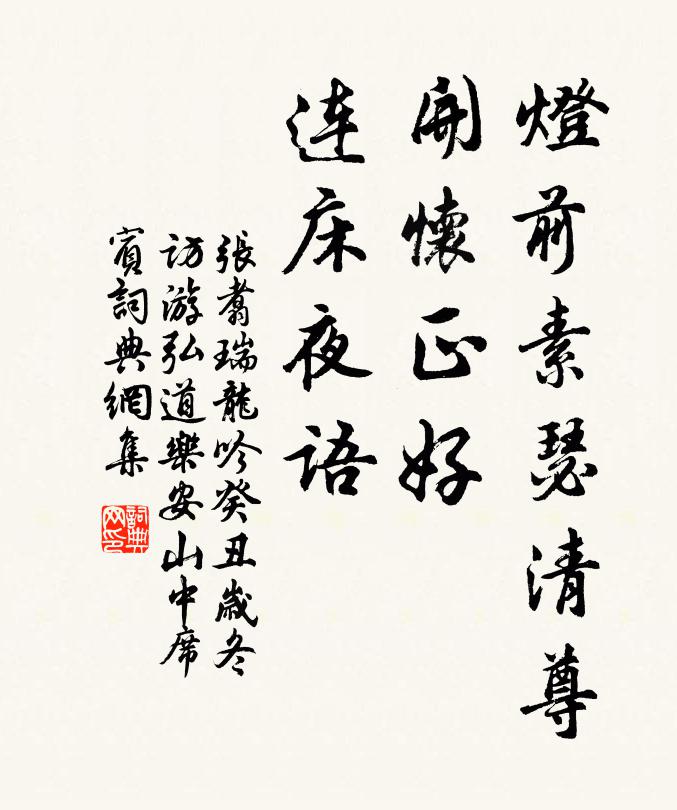 燈前素瑟清尊
開懷正好
连床夜语
張翥瑞龍吟癸丑歲冬
訪游弘道樂安山中席
賓詞典網集
詞典网印